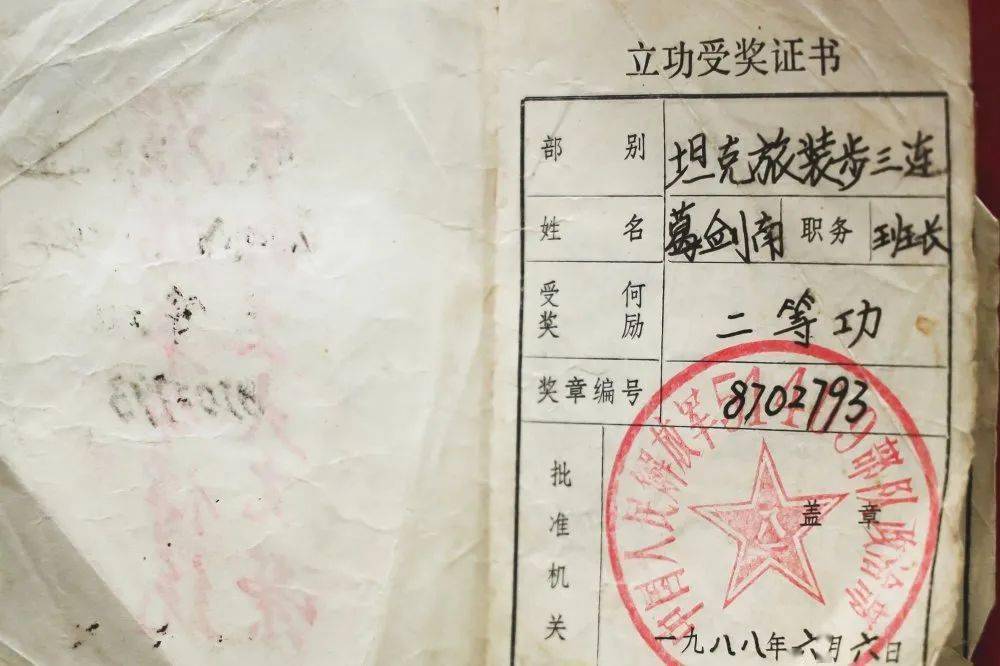 立功受奖证书
部别 坦克旅装步三连
姓名 葛剑南 职务 班长
受何奖励 二等功
奖章编号 8702793
批准机关
盖章
中国人民解放军 部队政治部
一九八八年六月六日